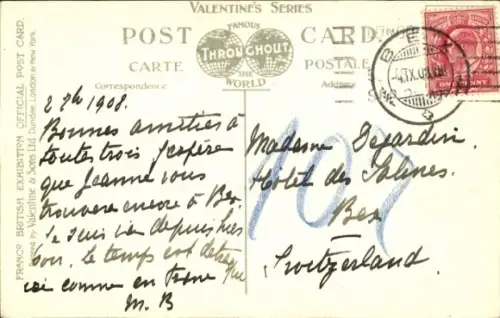 VALENTINE'S SERIES
FAMOUS
POST CARD
THROUGHOUT
CARTE POSTALE
THE
WORLD
Correspondence
Address
FRANCO BRITISH EXHIBITION OFFICIAL POST CARD.
Valentine & Sons Ltd Dundee, London & New York.
ONE PENNY
BEX
2 7bre 1908.
Bonnes amitiés à
toutes trois J'espère
que Jeanne vous
trouvera encore à Bex.
Je suis ici depuis hier
soir. le temps est détraqué
ici comme en
M. B
Madame Dejardin
Hôtel des Salines.
Bex
Switzerland.
107